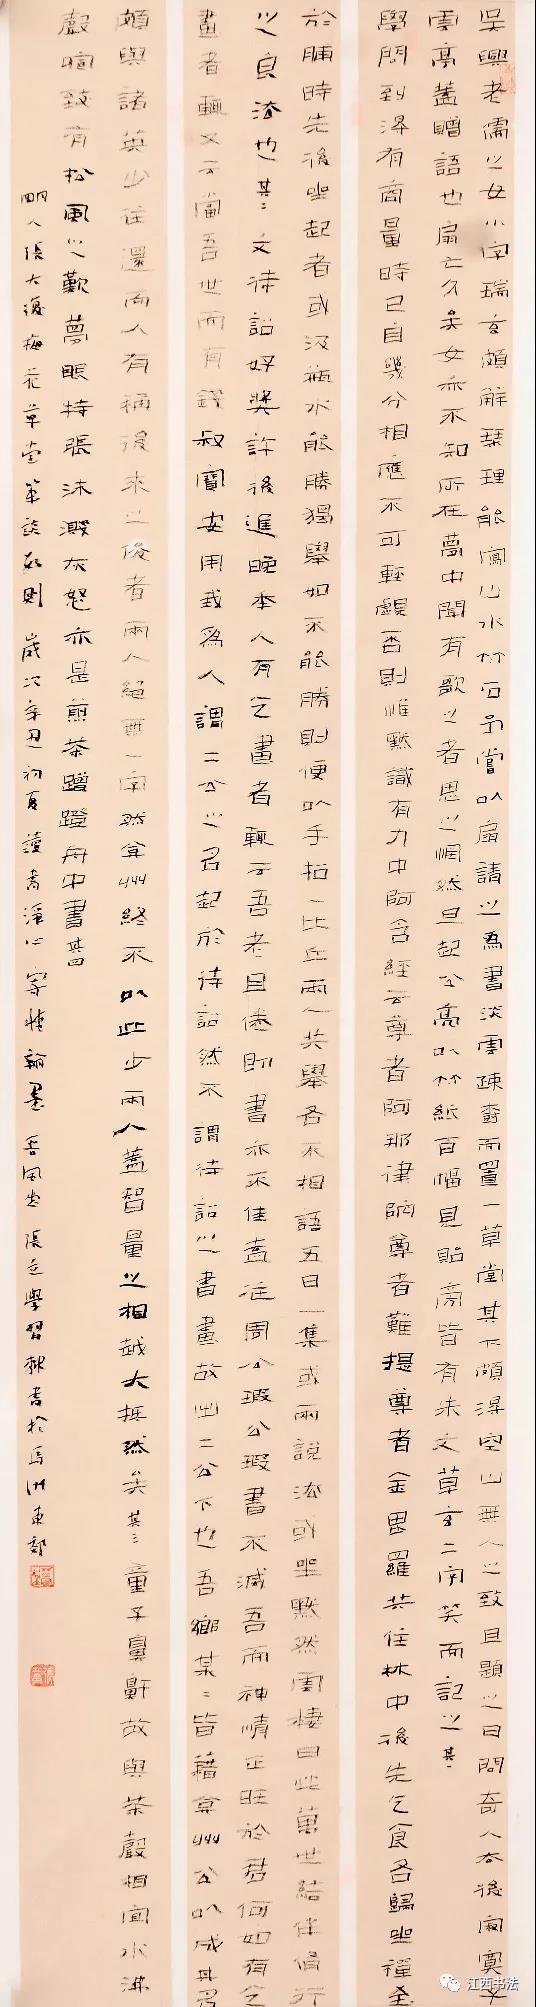 吳興老儒之女小字瑞玄頗解琹理能寫山水竹石予嘗以扇請之為書淡雲疎樹而置一草堂其下頗得空山無人之致且題之曰問奇人去後寂寞子
雲亭蓋贈語也扇亡久矣女亦不知所在夢中聞有歌之者思之惘然旦起公亮以竹紙百幅見貽旁皆有朱文草玄二字笑而記之 其一
學問到得有商量時已自幾分相應不可輕覷否則惟默識有力中阿含經云尊者阿那律陁尊者難提尊者金毘羅共住林中後先乞食各歸坐禪至
於脯時先後坐起者或汲瓶水能勝獨舉如不能勝則便以手招一比丘兩人共舉各不相語五日一集或兩說法或坐默然雲棲曰此萬世結伴脩行
之良法也 其二 文待詔好奬許後進晚季人有乞畫者輒云吾老目倦即書亦不佳盍往周公瑕公瑕書不減吾而神情正旺於君何如有乞
畫者輒又云當吾世而有錢叔寶安用我為人謂二公之名起於待詔然不謂待詔之書畫故出二公下也吾鄉某某皆藉弇州公以成其名
頗與諸英少往還而人有稱後來之俊者兩人絕無一字然弇州終不以此少兩人蓋智量之相越大抵然矣 其三 童子鼻鼾故與茶聲相宜水沸
聲喧致有松風之歎夢眼特張沫濺灰怒亦是煎茶蹭蹬舟中書 其四
明人張大復梅花草堂筆談數則 歲次辛丑初夏讀書淨心寄情翰墨 張立學習隸書於馬洲東郊
江西书法